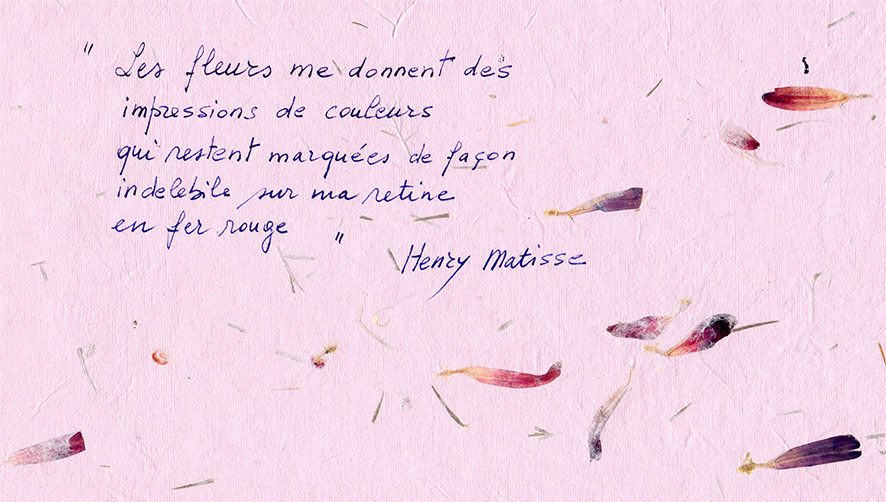 " Les fleurs me donnent des
impressions de couleurs
qui restent marquées de façon
indelebile sur ma retine
en fer rouge "
Henry Matisse